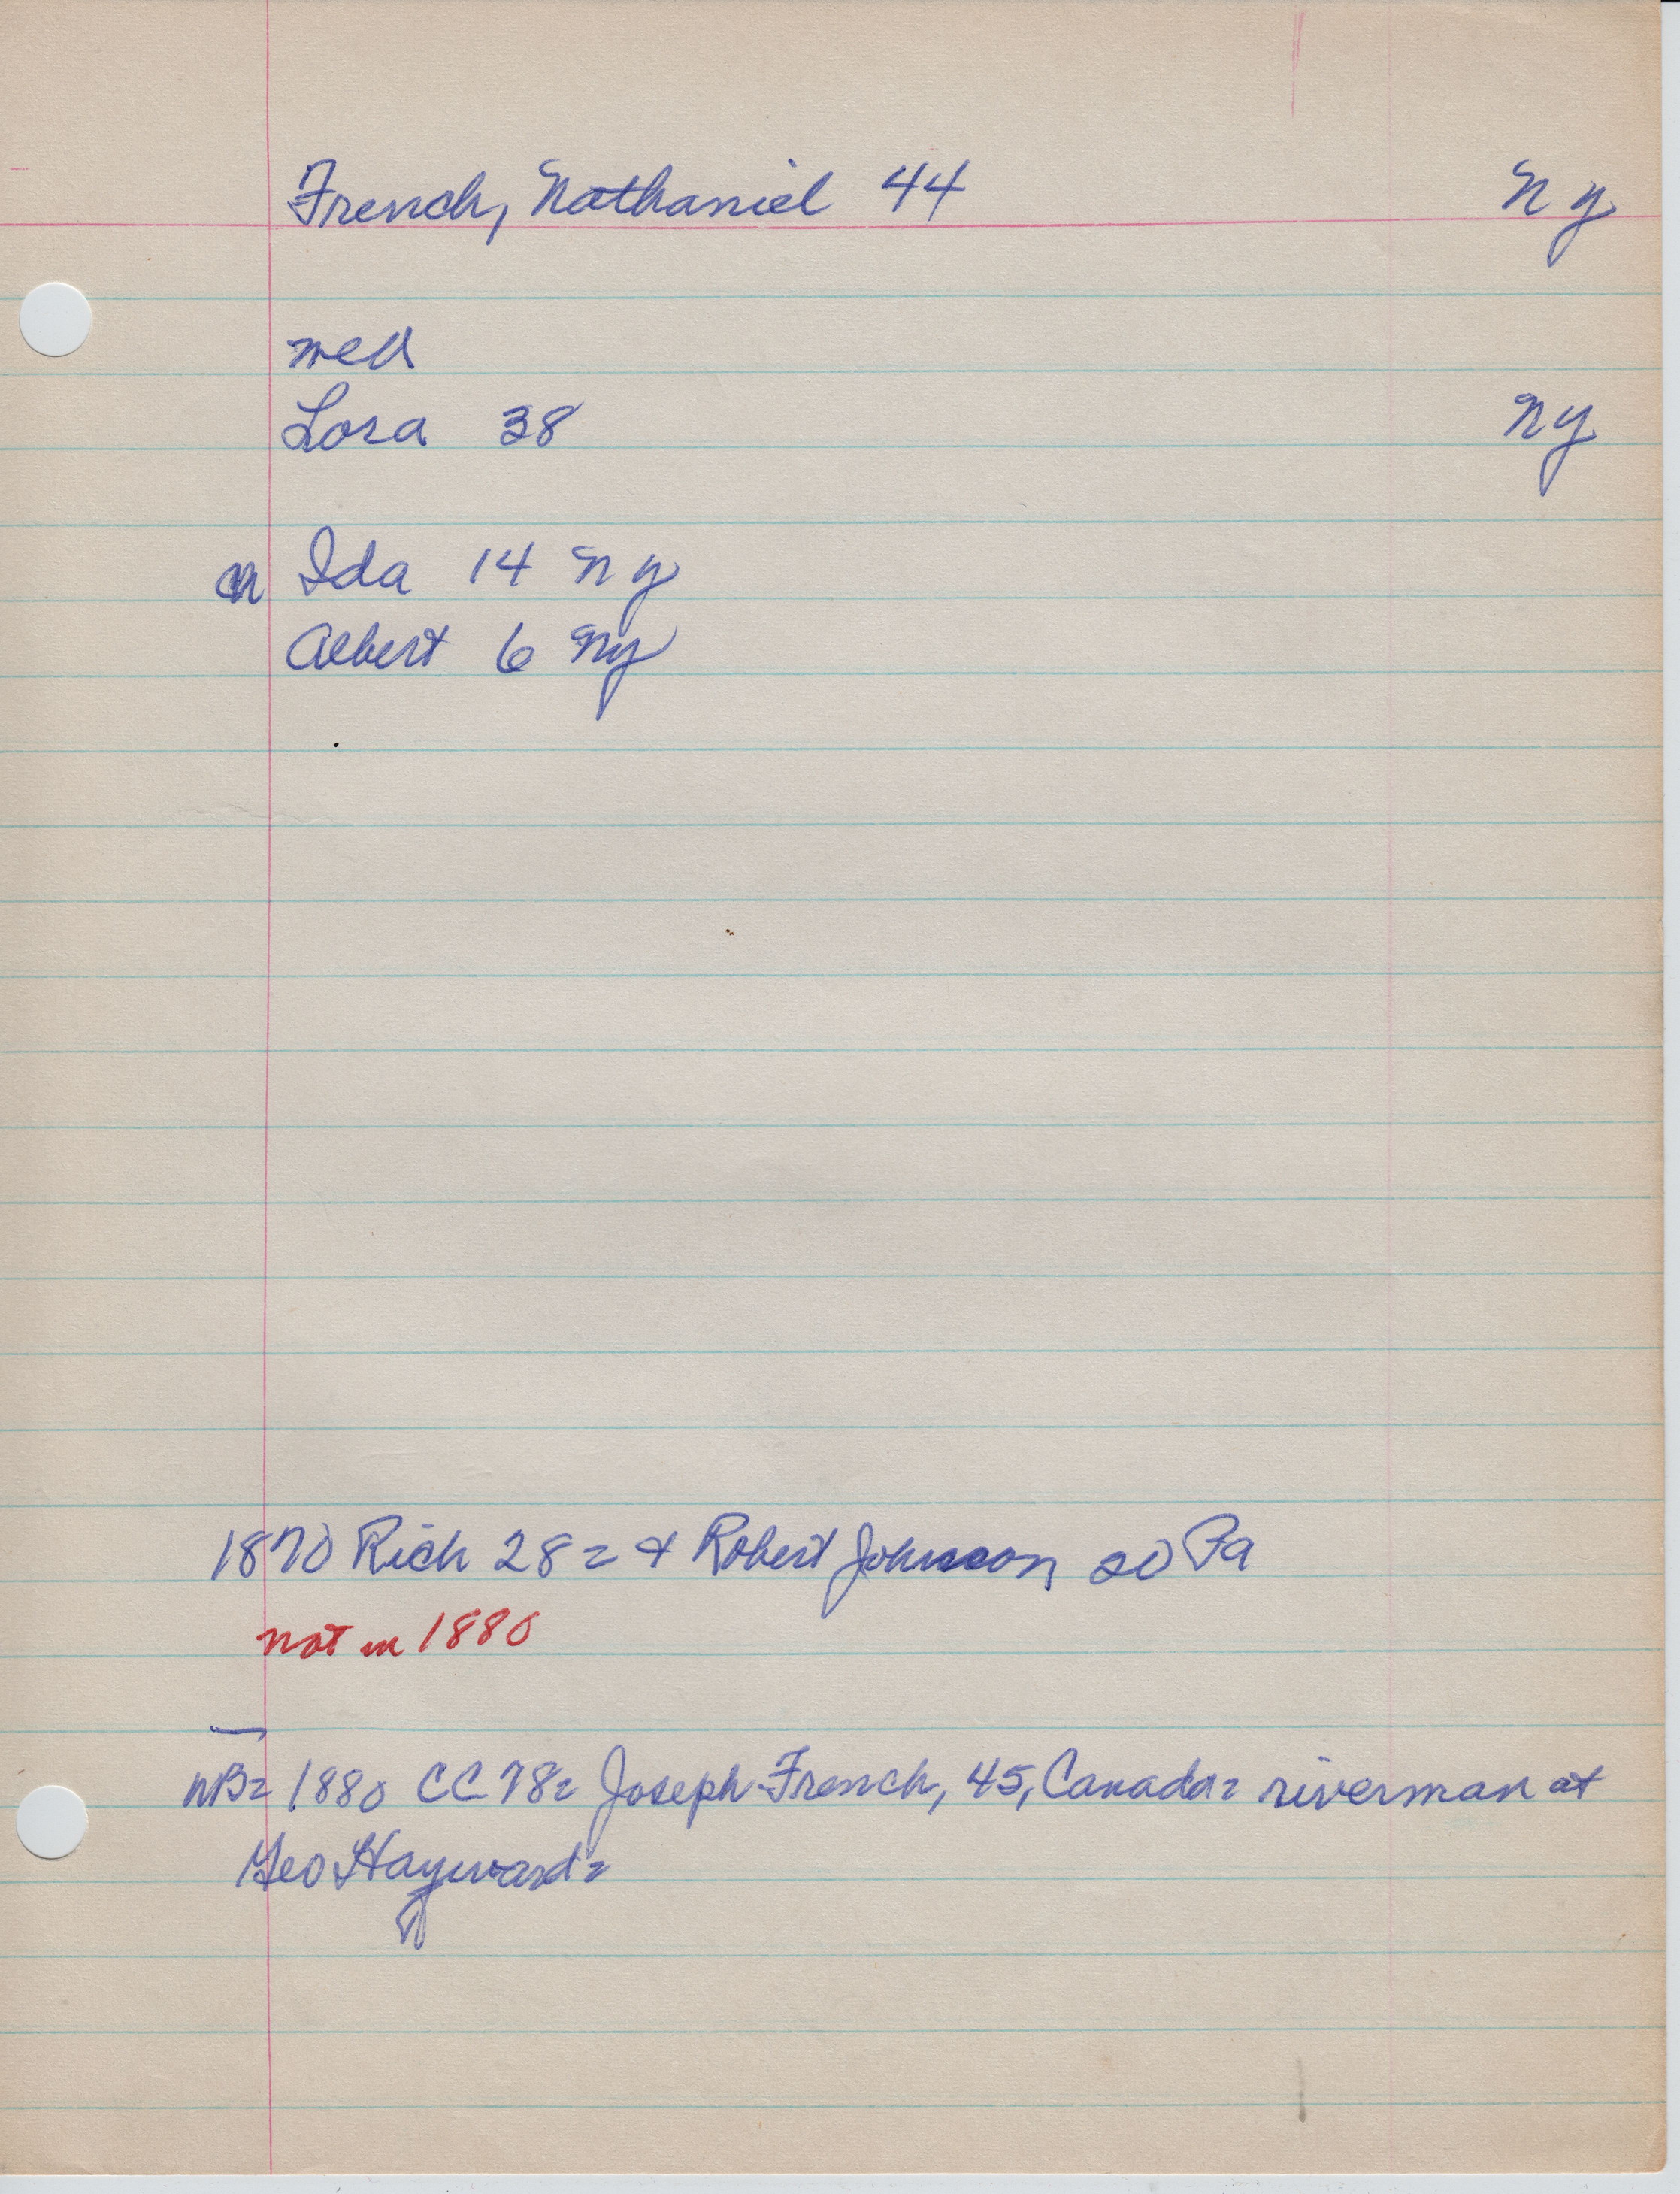 French, Nathaniel 44 NY
med
Lora 38 NY
ch Ida 14 NY
Albert 6 NY
1870 Rich 28 = + Robert Johnson 20 Pa
not in 1880
NB = 1880 CC 78 = Joseph French, 45, Canada = riverman at
Geo Hayward =